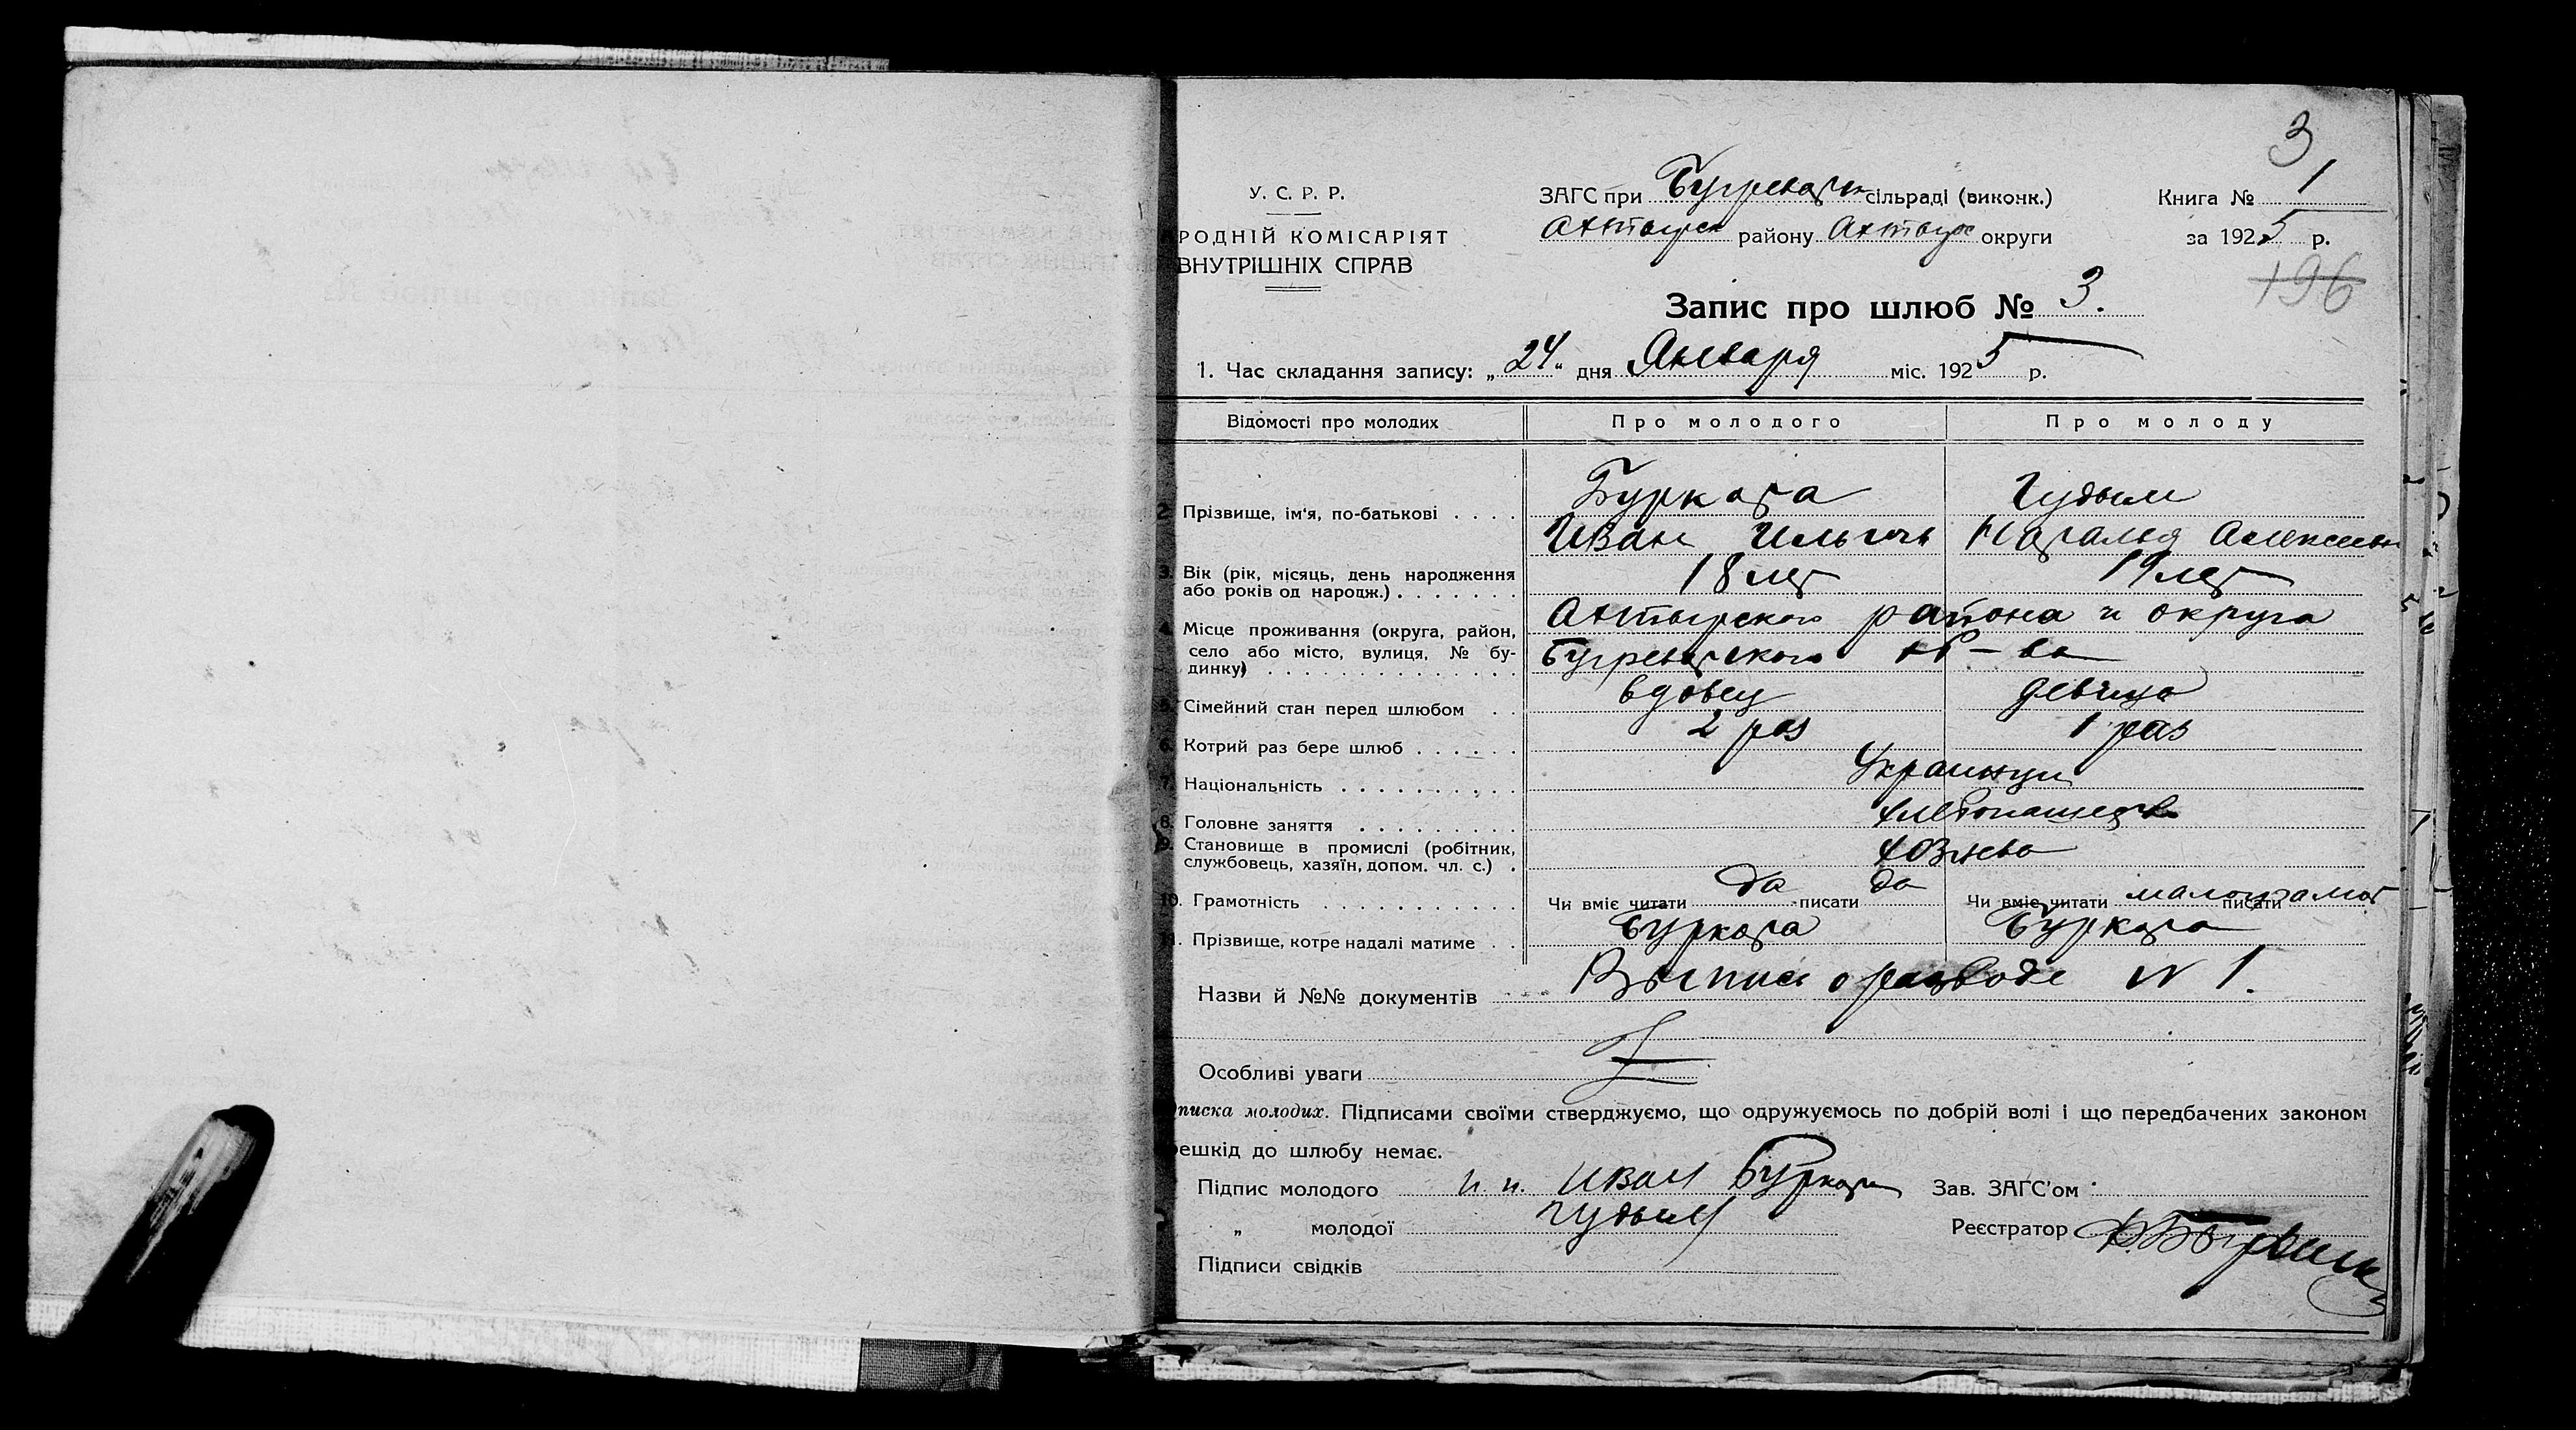 3
У. С. Р. Р.
ЗАГС при Бугреват сільраді (виконк.)
Книга № 1
РОДНІЙ КОМІСАРІЯТ
Ахтырск району Ахтыр округи
за 1925 р.
ВНУТРІШНІХ СПРАВ
196
Запис про шлюб № 3.
1. Час складання запису: „24" дня Января міс. 1925 р.
Відомості про молодих Про молодого Про молоду
Буркота Гудым
2. Прізвище, ім'я, по-батькові . . . .
Иван Ильичь Наталья Алексеевн
3. Вік (рік, місяць, день народження 18 лет 19 лет
або років од народж.) . . . . . . .
Ахтырского района и округа
4. Місце проживання (округа, район,
село або місто, вулиця, № бу- Бугреватского
динку) . . . . . . . . . . . . . .
вдовец девица
5. Сімейний стан перед шлюбом . .
2 раз 1 раз
6. Котрий раз бере шлюб . . . . . .
Украинцы
7. Національність . . . . . . . . . .
8. Головне заняття . . . . . . . . . Хлебопашество
9. Становище в промислі (робітник,
службовець, хазяїн, допом. чл. с.) . Хозяева
10. Грамотність . . . . . . . . . . . Чи вміє читати да писати да Чи вміє читати малограмот писати
11. Прізвище, котре надалі матиме . . Буркота Буркота
Назви й №№ документів Выпись о разводе N 1.
Особливі уваги
писка молодих. Підписами своїми стверджуємо, що одружуємось по добрій волі і що передбачених законом
решкід до шлюбу немає.
Підпис молодого И. И. Иван Буркота Зав. ЗАГС'ом
„ молодої Гудым Реєстратор
Підписи свідків